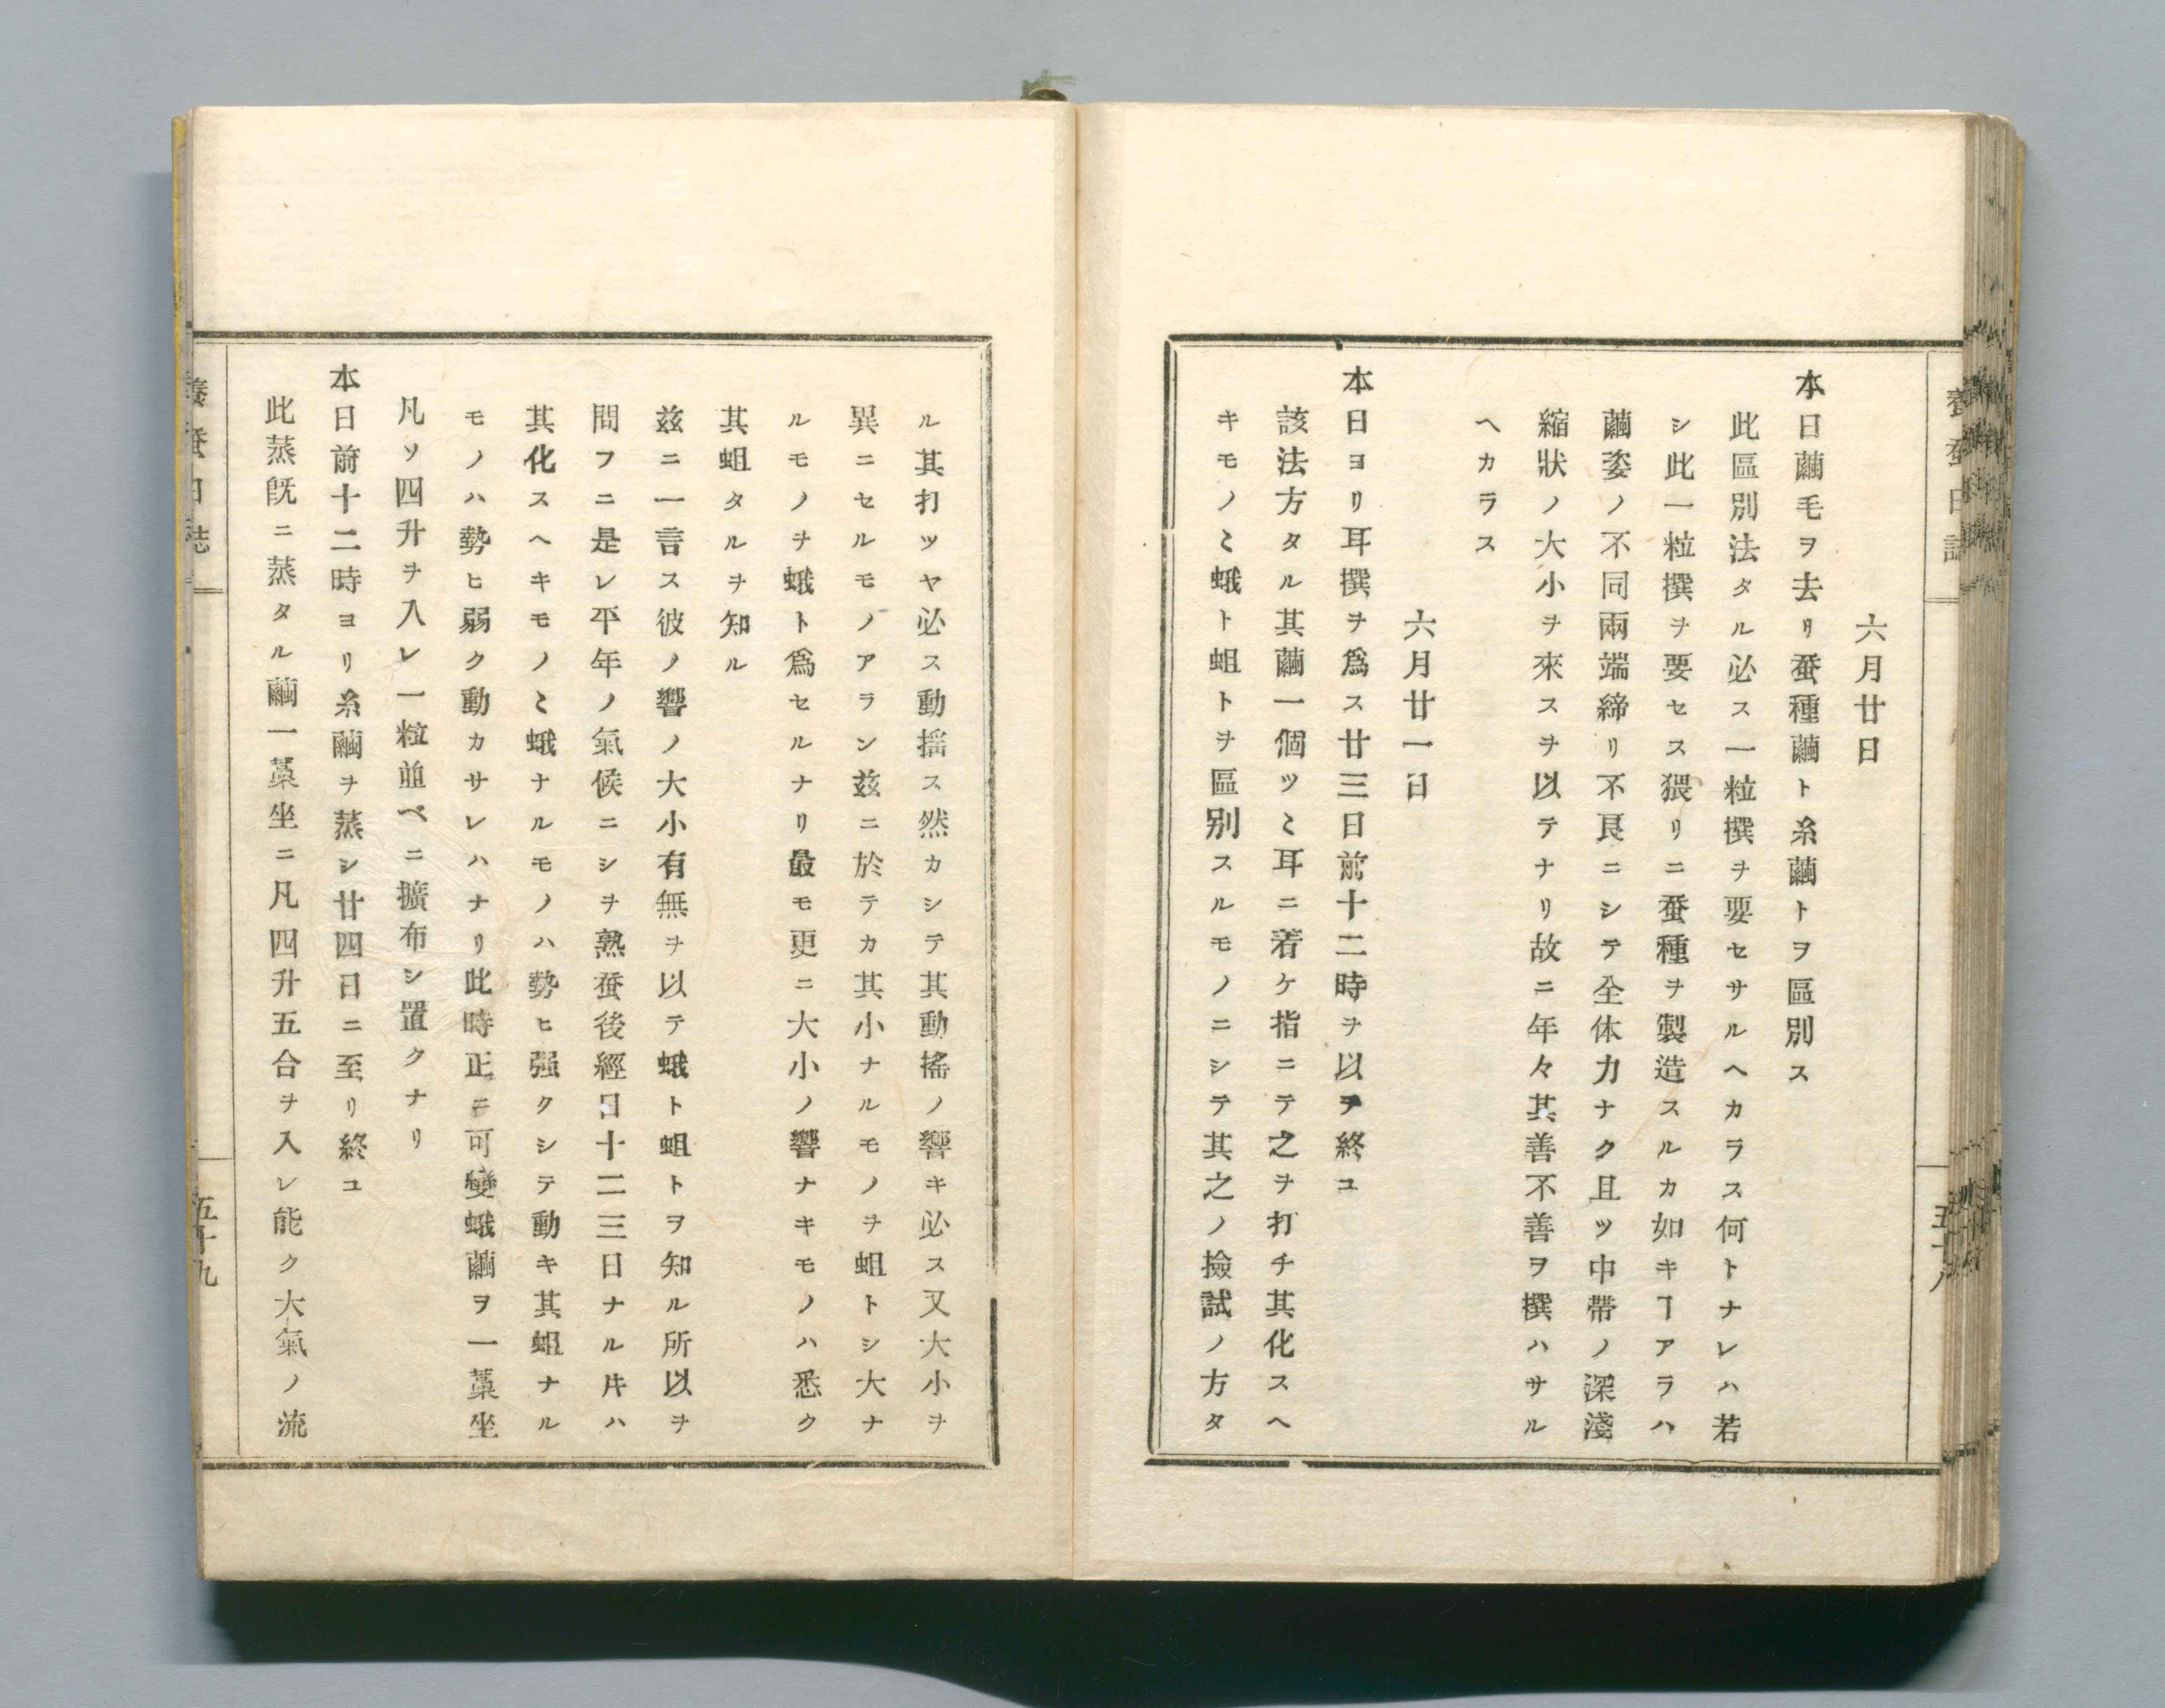 養蚕日誌
五十八
六月廿日
本日繭毛ヲ去リ蚕種繭ト糸繭トヲ區別ス
此區別法タル必ス一粒撰ヲ要セサルヘカラス何トナレハ若
シ此一粒撰ヲ要セス猥リニ蚕種ヲ製造スルカ如キヿアラハ
繭姿ノ不同兩端締リ不良ニシテ全体力ナク且ツ中帶ノ深淺
縮狀ノ大小ヲ來スヲ以テナリ故ニ年々其善不善ヲ撰ハサル
ヘカラス
六月廿一日
本日ヨリ耳撰ヲ爲ス廿三日前十二時ヲ以テ終ユ
該法方タル其繭一個ツヽ耳ニ着ケ指ニテ之ヲ打チ其化スヘ
キモノミ蛾ト蛆トヲ區別スルモノニシテ其之ノ撿試ノ方タ
ル其打ツヤ必ス動搖ス然カシテ其動搖ノ響キ必ス又大小ヲ
異ニセルモノアラン茲ニ於テカ其小ナルモノヲ蛆トシ大ナ
ルモノヲ蛾ト爲セルナリ最モ更ニ大小ノ響ナキモノハ悉ク
其蛆タルヲ知ル
茲ニ一言ス彼ノ響ノ大小有無ヲ以テ蛾ト蛆トヲ知ル所以ヲ
問フニ是レ平年ノ氣候ニシヲ熟蚕後經日十二三日ナル井ハ
其化スヘキモノミ蛾ナルモノハ勢ヒ强クシテ動キ其蛆ナル
モノハ勢ヒ弱ク動カサレハナリ此時正ニ可變蛾繭ヲ一藁坐
凡ソ四升ヲ入レ一粒並ベニ擴布シ置クナリ
本日前十二時ヨリ糸繭ヲ蒸シ廿四日ニ至リ終ユ
此蒸旣ニ蒸タル繭一藁坐ニ凡四升五合ヲ入レ能ク大氣ノ流
養蚕日誌
五十九